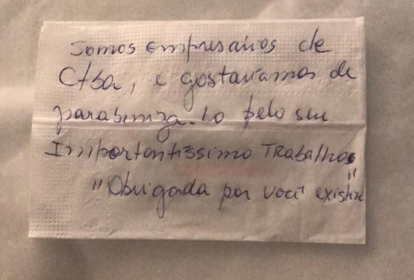 Somos empresários de
Ctba, e gostaríamos de
parabeniza-lo pelo seu
Importantíssimo Trabalho
"Obrigada por você existir"